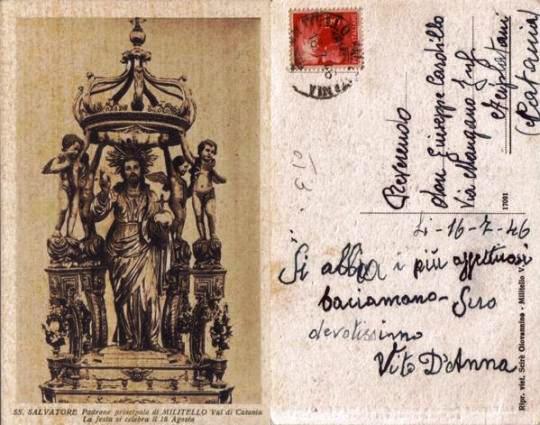 SS. SALVATORE Padrone principale di MILITELLO Val di Catania
La festa si celebra il 18 Agosto
MILITELLO
Reverendo
don Giuseppe Cardillo
Via Mangano Inf
(Catania)
17091
lì - 16 - 7 - 46
Si abbia i più affettuosi
baciamano - Suo
devotissimo
Vito D'Anna
Ripr. viet. Scirè Giovannino - Militello V.